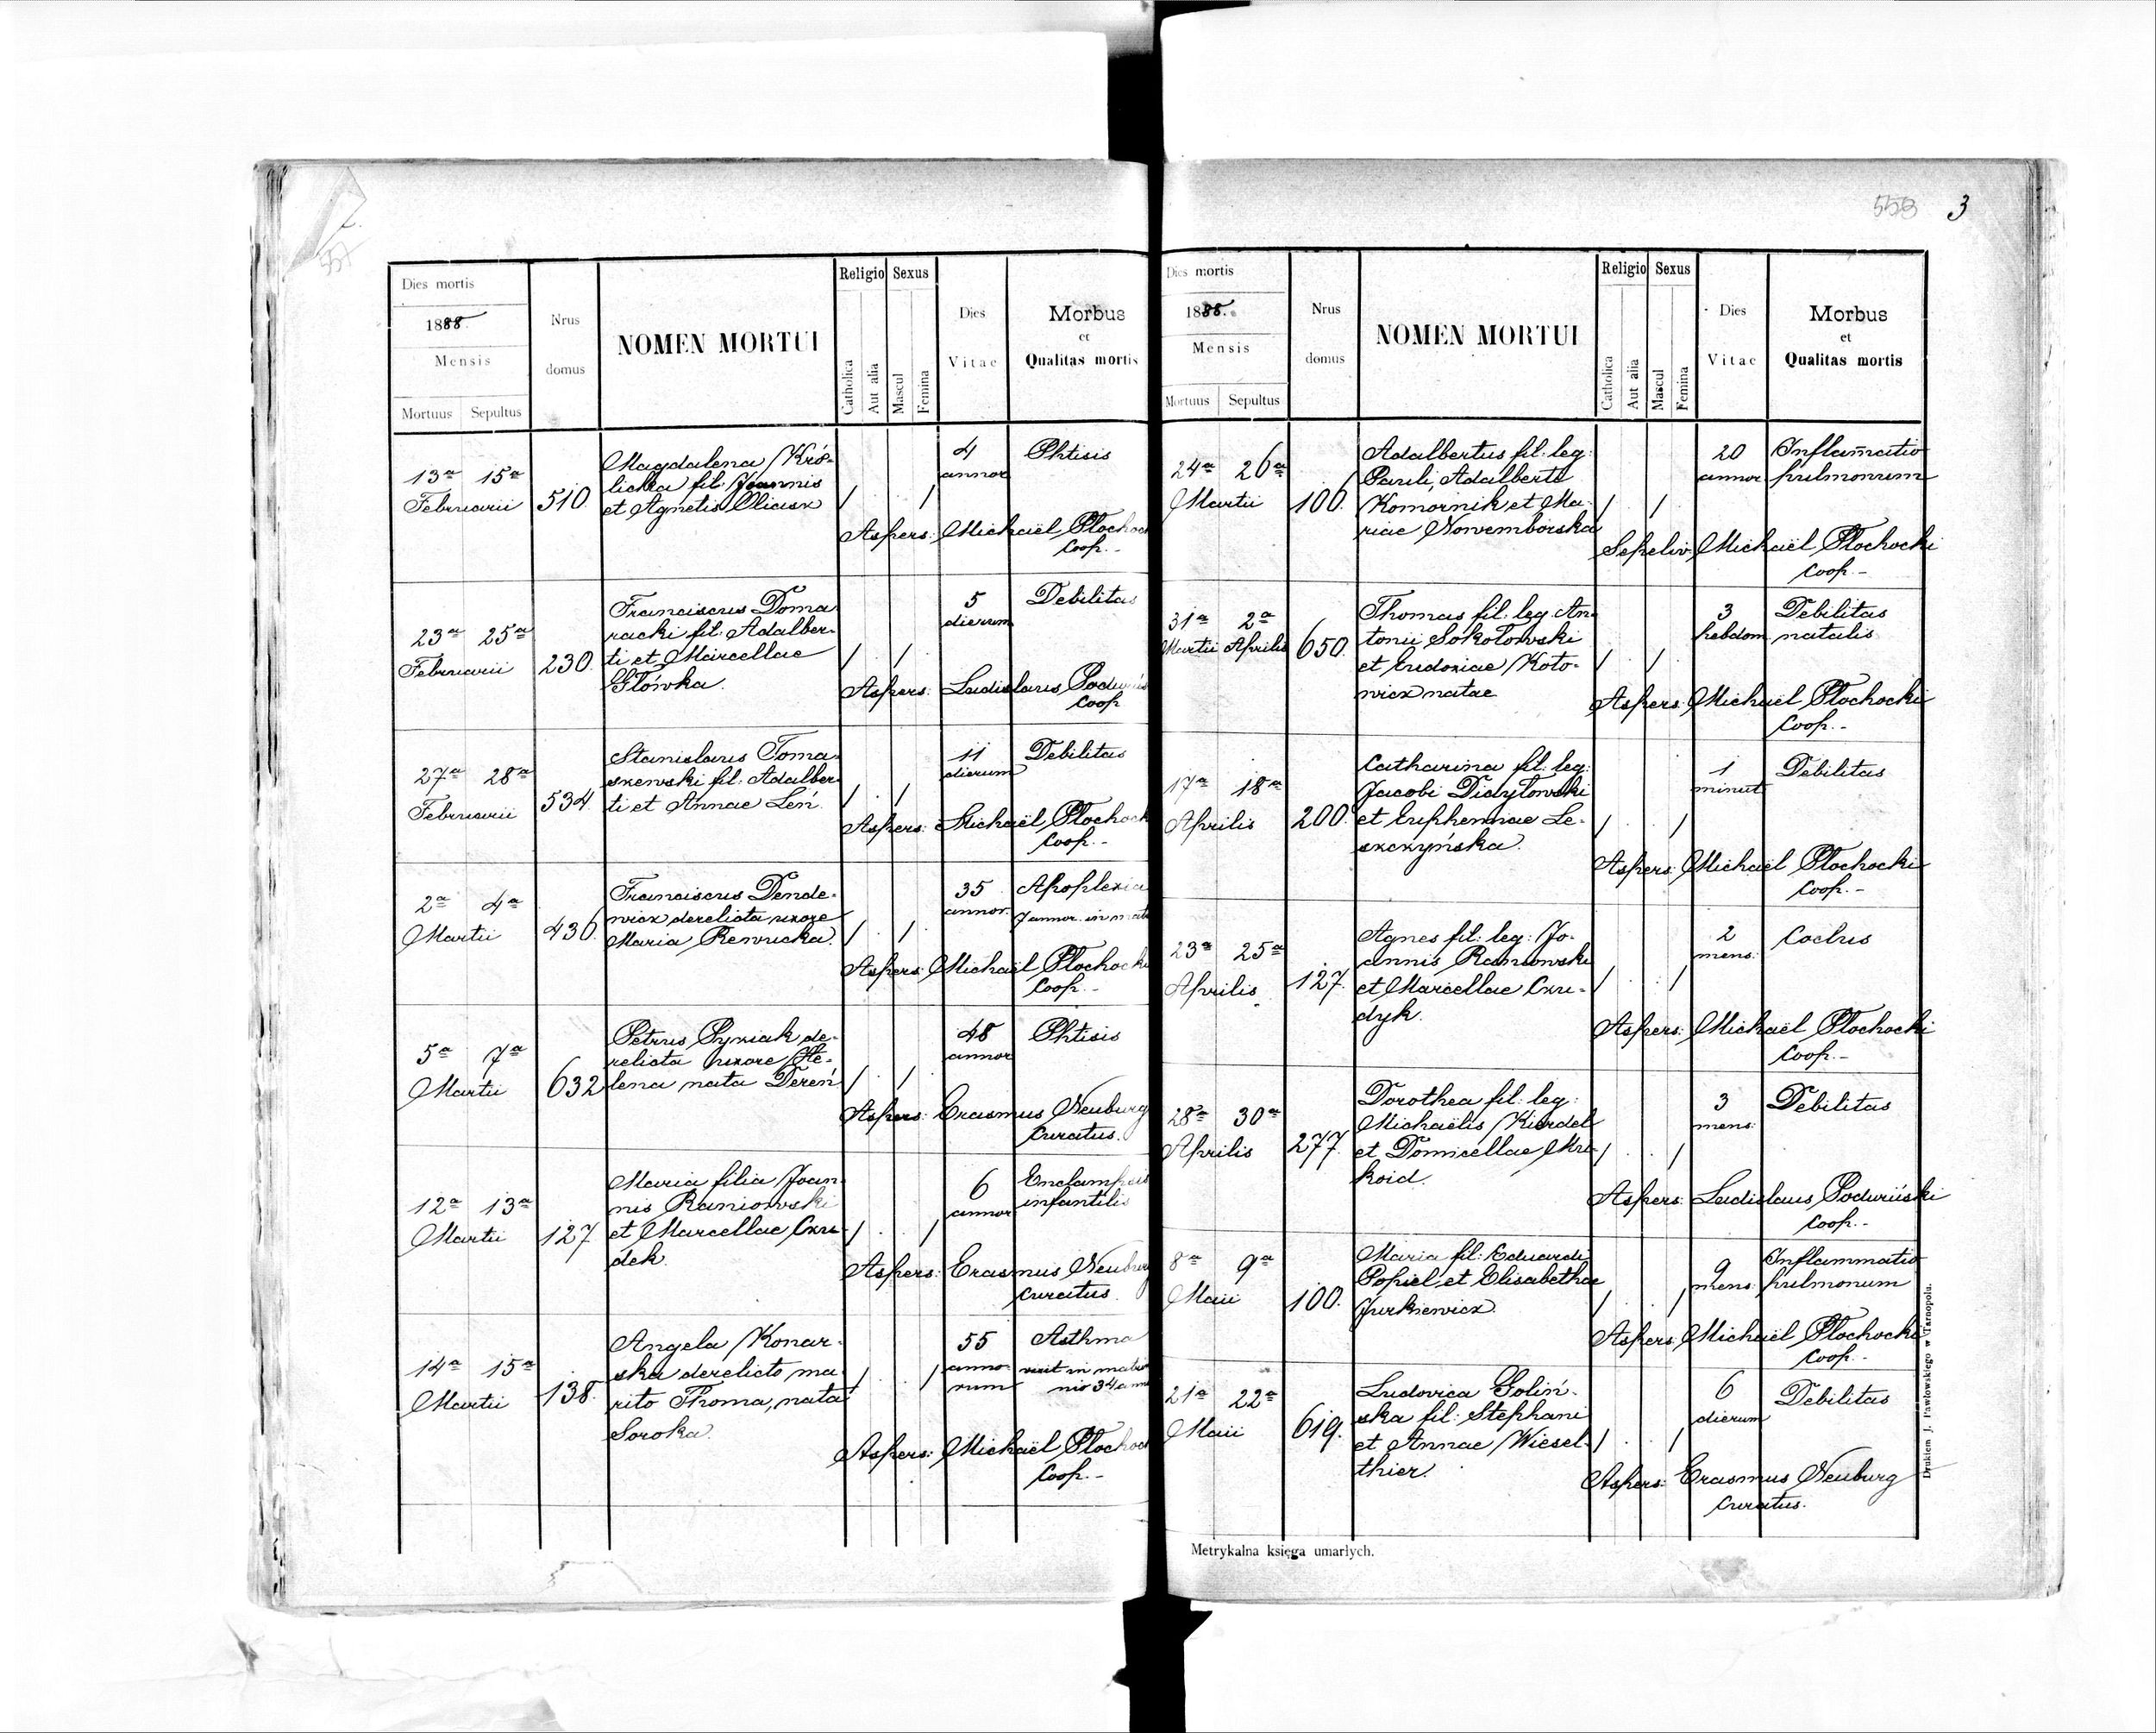 553 3
Dies mortis
1888.
Mensis
Mortuus Sepultus
Nrus domus
NOMEN MORTUI
Religio Sexus
Catholica Aut alia Mascul Femina
Dies Vitae
Morbus
et
Qualitas mortis
13a 15a
Februarii 510.
Magdalena Kró-
licka fil: Joannis
et Agnetis Oliasz
4 annor
Phtisis
Aspers: Michaël Płochoc
Coop.-
23a 25a
Februarii 230.
Franciscus Doma
racki fil: Adalber-
ti et Marcellae
Główka.
5 dierum
Debilitas
Aspers: Ladislaus
Coop
27a 28a
Februarii 534.
Stanislaus Toma-
szewski fil: Adalber-
ti et Annae Leń.
11 dierum
Debilitas
Aspers: Michaël Płochock
Coop.-
2a 4a
Martii 430.
Franciscus Dende-
wicz derelicta uxore
Maria Rewucka.
35 annor.
Apoplexia
7 annor. in
Aspers: Michaël Płochocki
Coop.-
5a 7a
Martii 632
Petrus Pyziak de-
relicta uxore He-
lena nata Dereń
48 annor
Phtisis
Aspers: Erasmus Neuburg
Curatus.
12a 13a
Martii 127
Maria filia Joan
nis Raniowski
et Marcellae Czu-
dek.
6 annor
infantilis
Aspers: Erasmus Neuburg
Curatus.
14a 15a
Martii 138.
Angela Konar-
ska derelicto ma-
rito Thoma, nata
Soroka.
55 anno-
rum
Asthma
vixit in matri
nio 34 ann
Aspers: Michaël Płochoc
Coop.-
Dies mortis
1888.
Mensis
Mortuus Sepultus
Nrus domus
NOMEN MORTUI
Religio Sexus
Catholica Aut alia Mascul Femina
Dies Vitae
Morbus
et
Qualitas mortis
24a 26a
Martii 100.
Adalbertus fil: leg:
Pauli, Adalberti
Komornik et Ma-
riae Nowemborska
20 annor
Inflam̄atio
pulmonum
Sepeliv: Michaël Płochocki
Coop.-
31a 2a
Martii Aprilis 650.
Thomas fil: leg: An-
tonii Sokołowski
et Eudoxiae Koto-
wicz natae
3 hebdom
Debilitas
natalis
Aspers: Michaël Płochocki
Coop.-
17a 18a
Aprilis 200.
Catharina fil: leg:
Jacobi Didyłowski
et Euphemiae Le-
szczyńska.
1 minut
Debilitas
Aspers: Michaël Płochocki
Coop.-
23a 25a
Aprilis 127.
Agnes fil: leg: Jo-
annis Raniowski
et Marcellae Czu-
dyk.
2 mens:
Aspers: Michaël Płochocki
Coop.-
28a 30a
Aprilis 277.
Dorothea fil: leg:
Michaëlis Kierdel
et Domicellae
3 mens:
Debilitas
Aspers: Ladislaus
Coop.-
8a 9a
Maii 100.
Maria fil: Eduardi
Popiel et Elisabethae
Jurkiewicz.
9 mens:
Inflammatio
pulmonum
Aspers: Michaël Płochocki
Coop.-
21a 22a
Maii 619.
Ludovica Goliń-
ska fil: Stephani
et Annae Wiesel-
thier.
6 dierum
Debilitas
Aspers: Erasmus Neuburg
Curatus.
Metrykalna księga umarłych.
Drukiem J. Pawłowskiego w Tarnopolu.